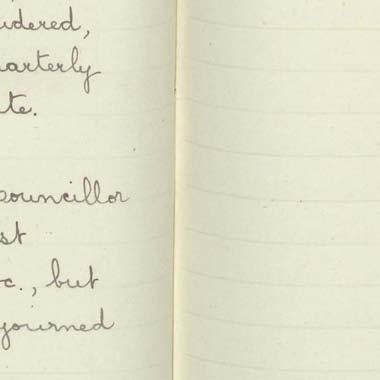 idered,
uarterly
te.
councillor
st
c., but
journed